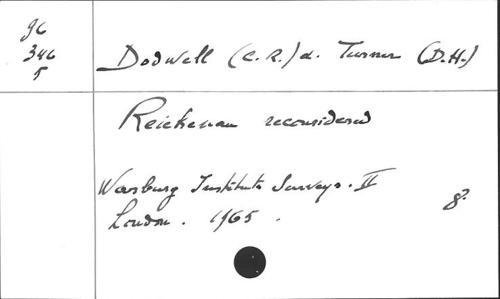 96
346
5
Dodwell (C.R.) &. Turner (D.H.)
Reichenau reconsidered
Warburg Institute Surveys. II
8º
London. 1965.